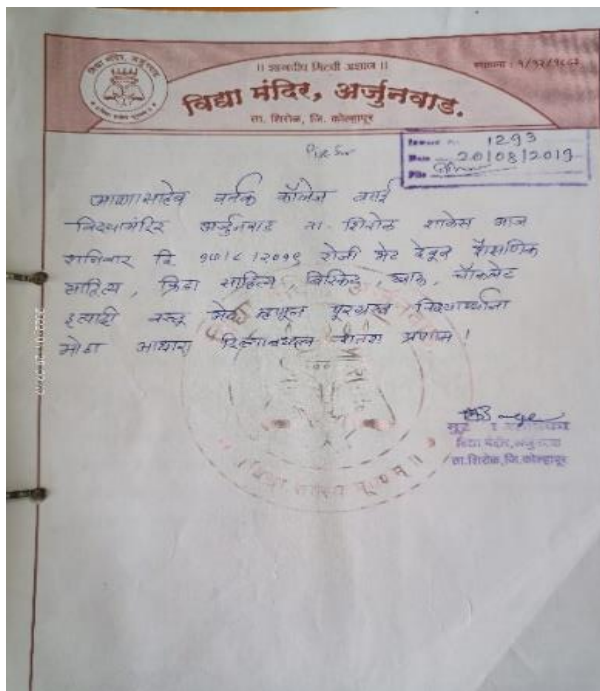 विद्या मंदिर, अर्जुनवाड.
ता. शिरोळ, जि. कोल्हापूर
1293
20/08/2019
कॉलेज वसई
विद्यामंदिर अर्जुनवाड ता. शिरोळ शाळेस आज
शनिवार दि १७/८/२०१९ रोजी भेट देवून शैक्षणिक
साहित्य, क्रिडा साहित्य, बिस्किट, चॉकलेट
इत्यादी वस्तू भेट म्हणून पुरग्रस्त विद्यार्थ्यांना
मोठा आधार प्रणाम!
विद्या मंदिर, अर्जुनवाड
ता. शिरोळ, जि. कोल्हापूर